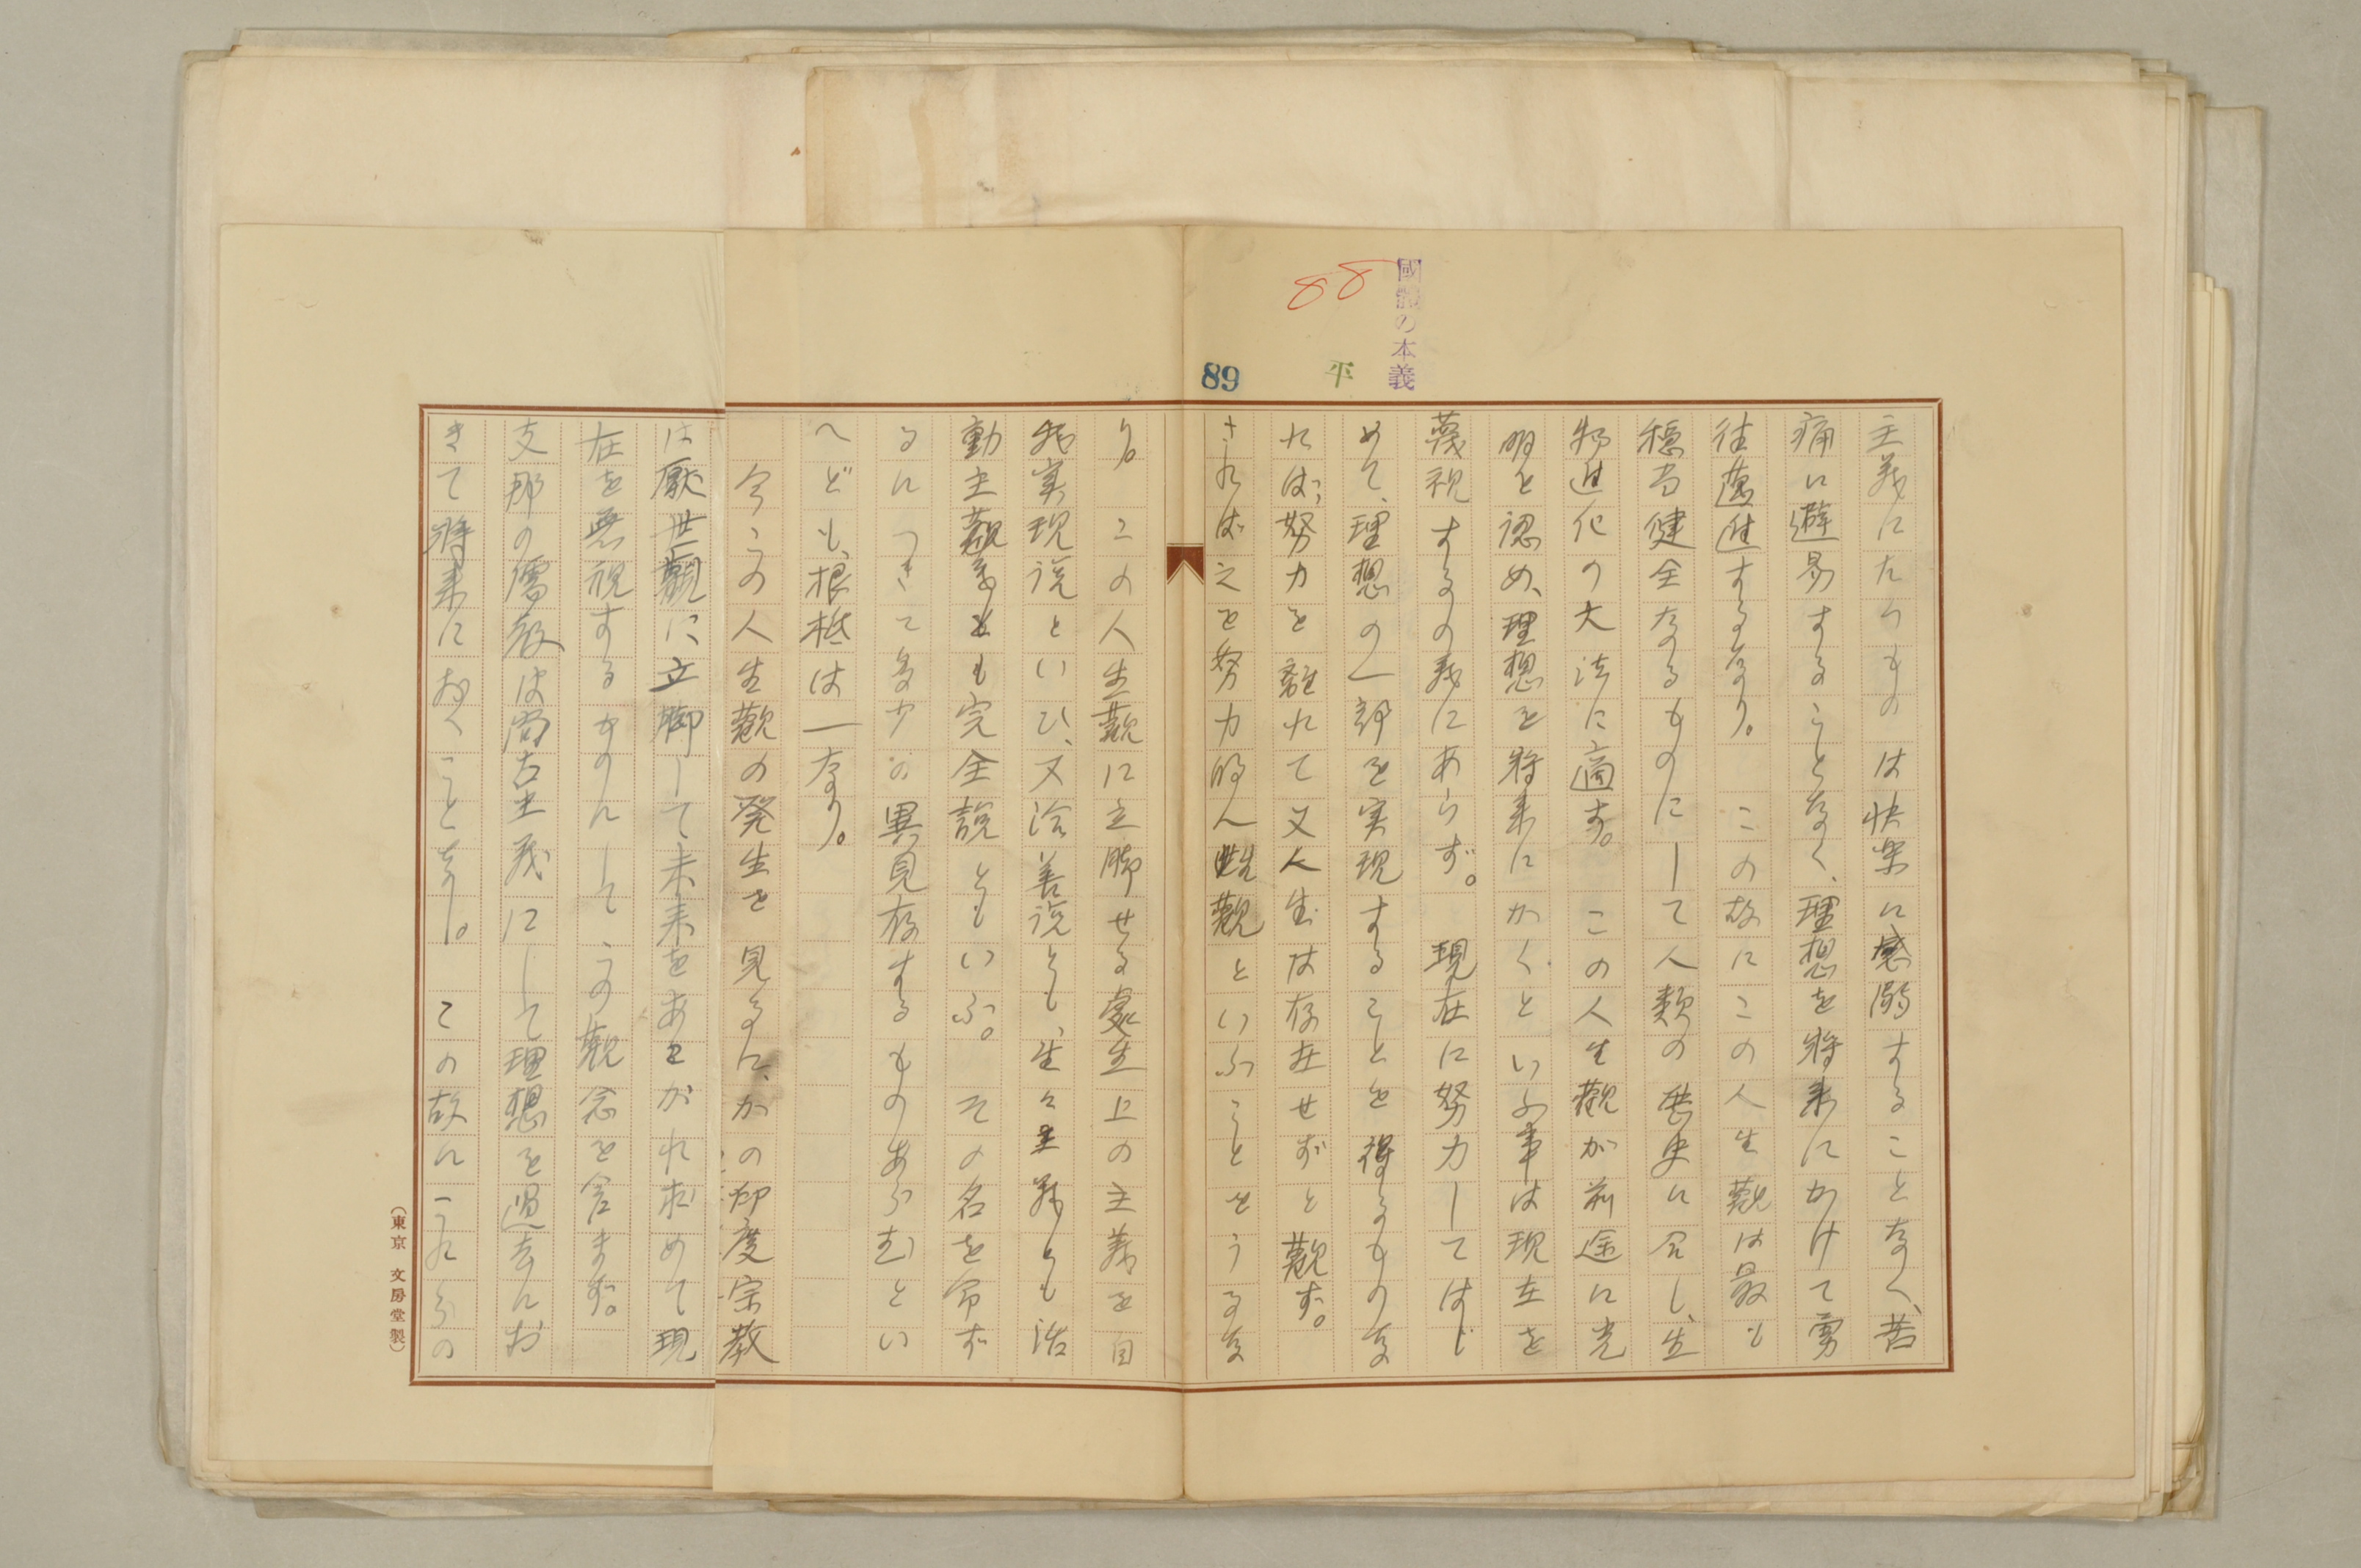 國體の本義
88
平
89
主義にたつものは快楽に惑溺することなく、苦
痛に避易することなく、理想を将来にかけて勇
往邁進するなり。 この故にこの人生觀は最も
穏当健全なるものにして人類の歴史に合し、生
物進化の大法に適す。 この人生觀が前途に光
明を認め、理想を将来にかくといふ事は現在を
蔑視するの義にあらず。 現在に努力してはじ
めて、理想の一部を実現することを得るものな
れば、努力を離れて又人生は存在せずと觀ず。
されば之を努力的人生觀といふことをうるな
り。 この人生觀に立脚せる處生上の主義を自
我実現説といひ、又洽善説とも、生々主義とも活
動主義とも完全説ともいふ。 その名を命ず
るにつきて多少の異見存するものあらむとい
へども、根柢は一なり。
今この人生觀の発生を見るに、かの印度宗教
は厭世觀に立脚して未来をあこがれ求めて現
在を無視するものにしてこの觀念を容まず。
支那の儒教は尚古主義にして理想を過去にお
きて将来におくことなし。 この故にこれらの
(東京 文房堂製)